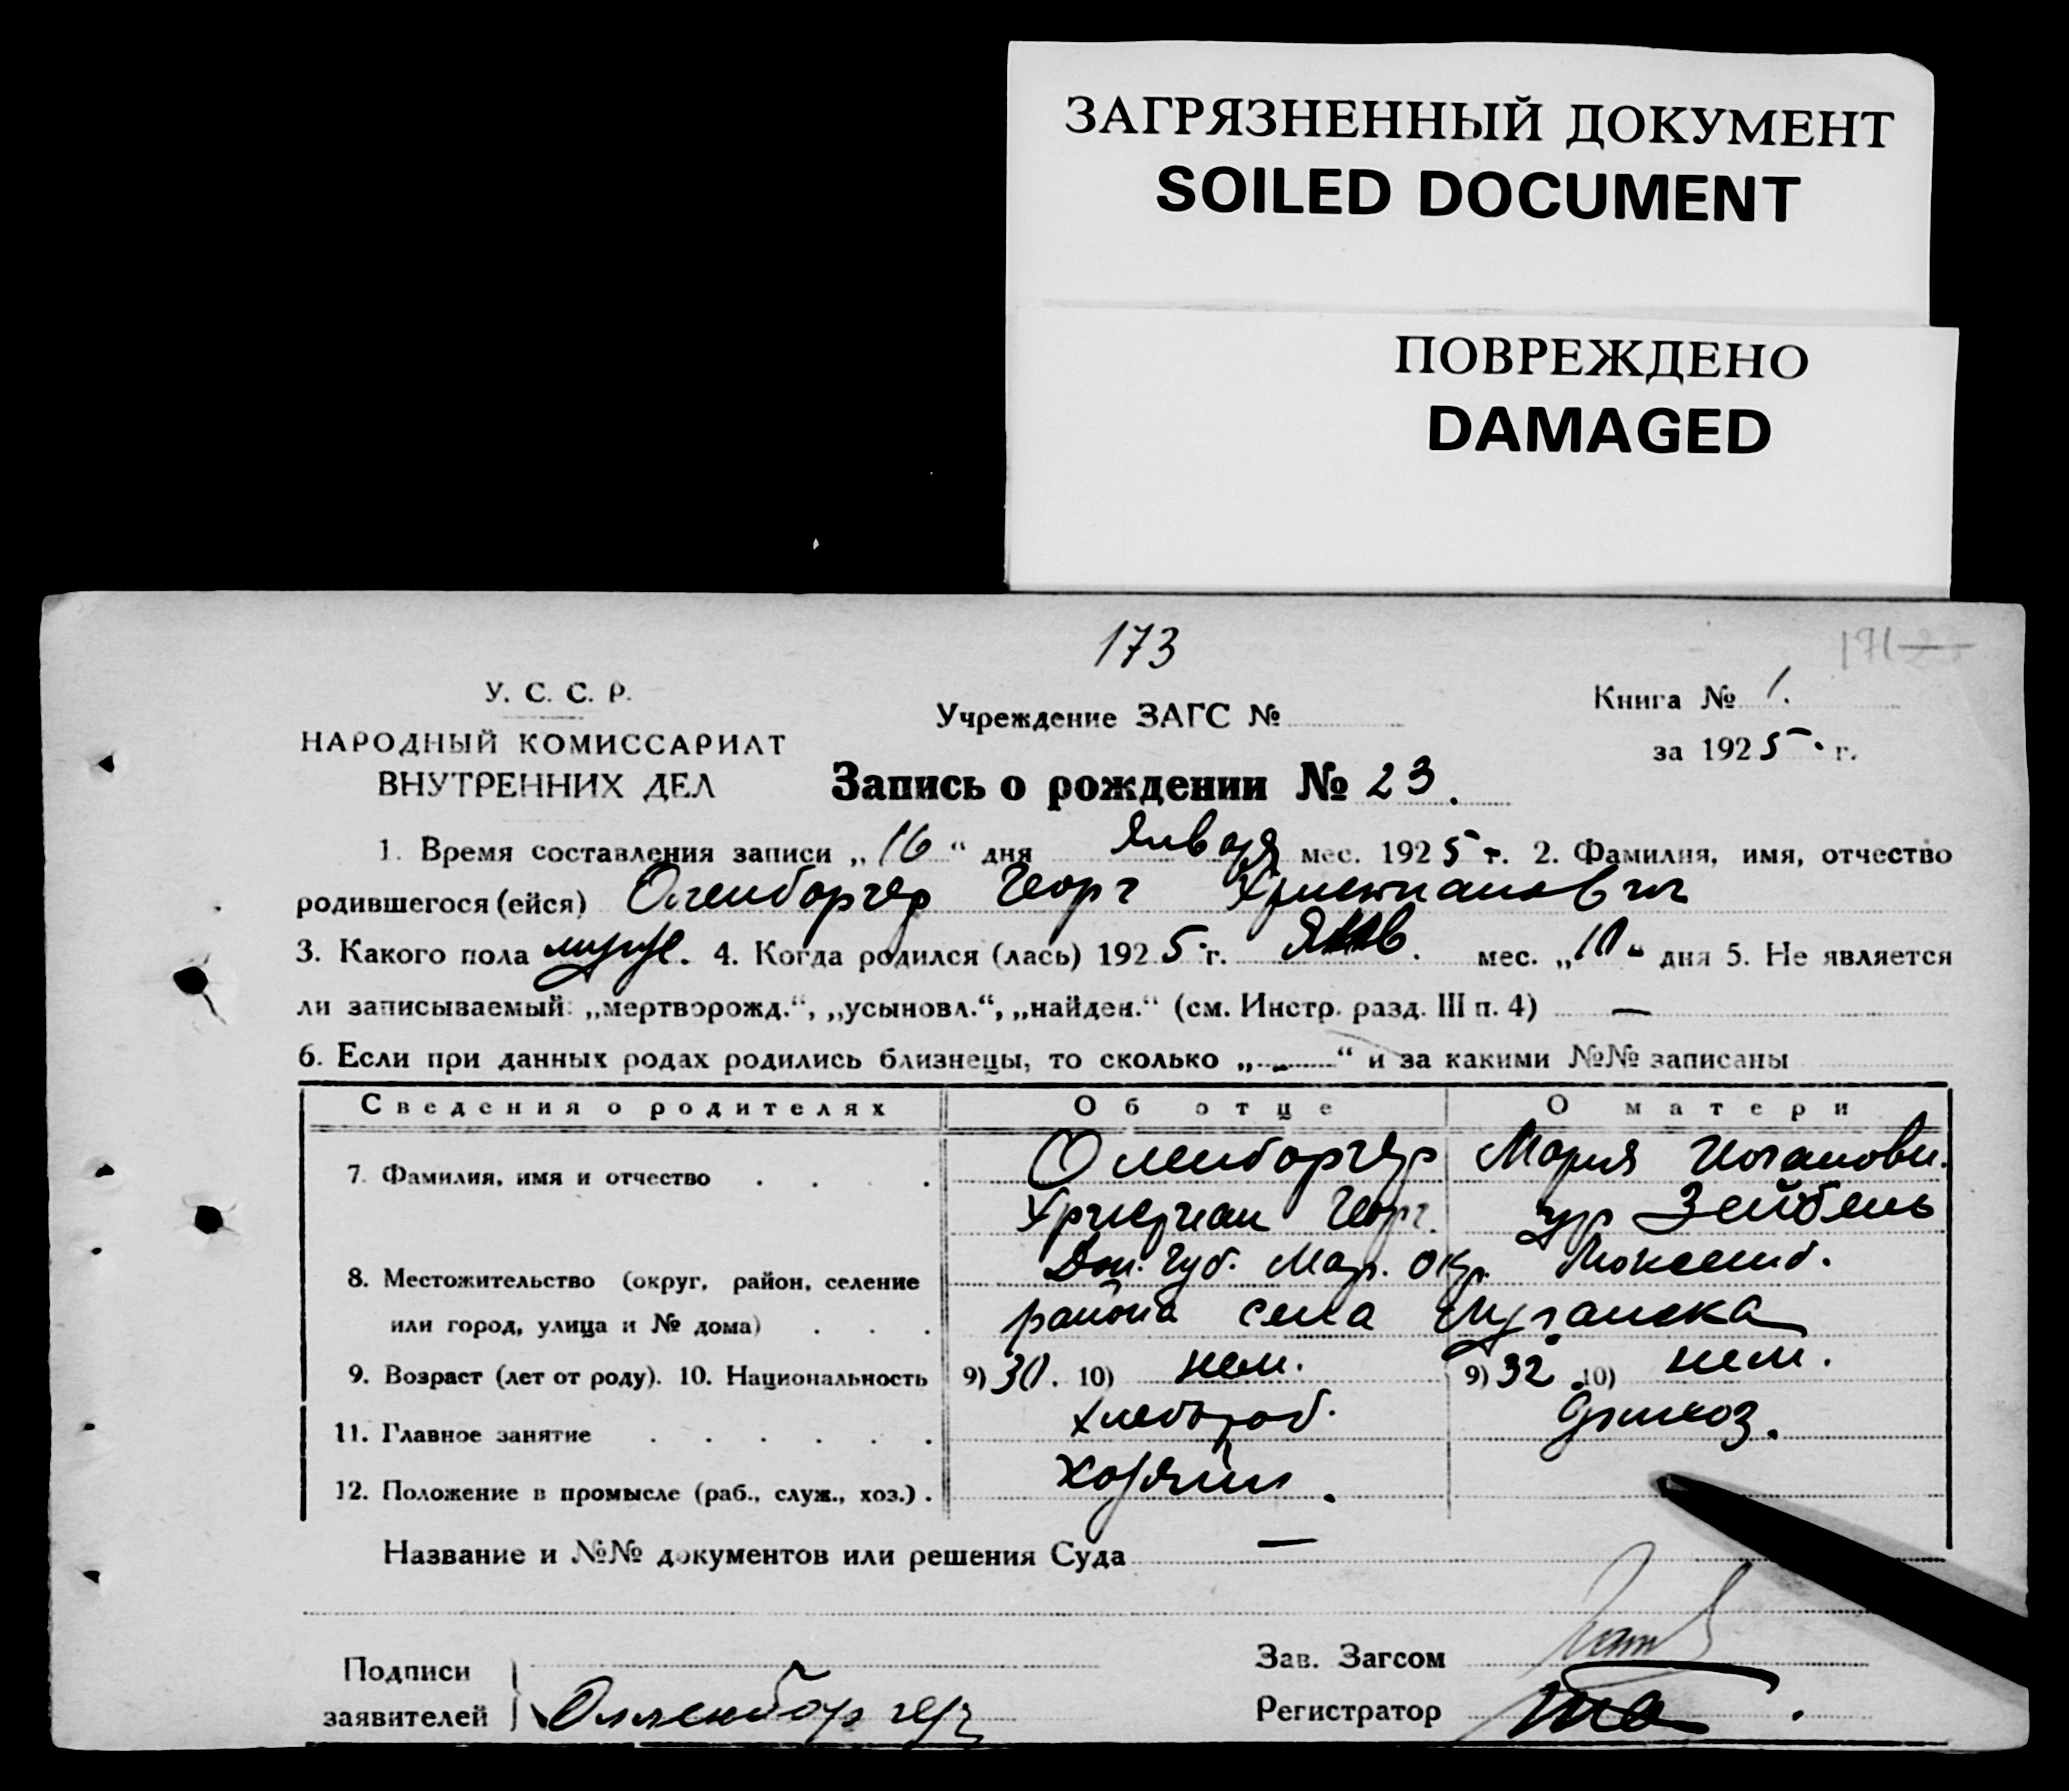 ЗАГРЯЗНЕННЫЙ ДОКУМЕНТ
SOILED DOCUMENT
ПОВРЕЖДЕНО
DAMAGED
173
У. С. С. Р.
НАРОДНЫЙ КОМИССАРИАТ
ВНУТРЕННИХ ДЕЛ
Учреждение ЗАГС №
Книга № 1.
за 1925 г.
Запись о рождении № 23.
1. Время составления записи „16“ дня Января мес. 1925 г. 2. Фамилия, имя, отчество
родившегося (ейся) Оленборгер Георг Християнович
3. Какого пола муж. 4. Когда родился (лась) 1925 г. Янв. мес. „10“ дня 5. Не является
ли записываемый: „мертворожд.“, „усыновл.“, „найден.“ (см. Инстр. разд. III п. 4) —
6. Если при данных родах родились близнецы, то сколько „—“ и за какими №№ записаны
Сведения о родителях Об отце О матери
7. Фамилия, имя и отчество Оленборгер Мария Иоганови.
Християн Георг. ур Зейбель
8. Местожительство (округ, район, селение Дон. Губ. Мар. Окр.
или город, улица и № дома) района села
9. Возраст (лет от роду). 10. Национальность 9) 30. 10) нем. 9) 32 10) нем.
11. Главное занятие хлебороб. домхоз.
12. Положение в промысле (раб., служ., хоз.) хозяин.
Название и №№ документов или решения Суда —
Подписи
заявителей Олленборгер
Зав. Загсом
Регистратор